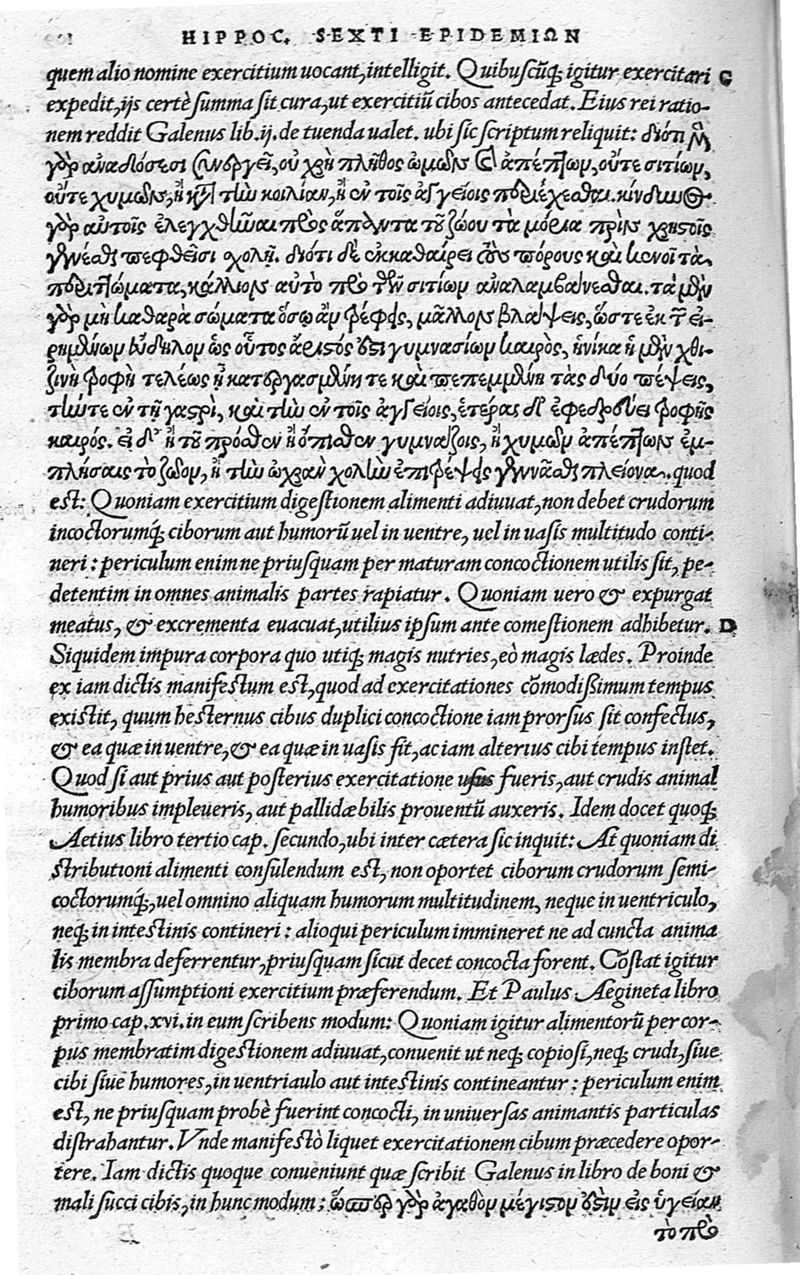 HIPPOC. SEXTI EPIDEMIΩN
quem alio nomine exercitium uocant, intelligit. Quibuscũq; igitur exercitari C
expedit, ijs certè summa sit cura, ut exercitiũ cibos antecedat. Eius rei ratio-
nem reddit Galenus lib. ij. de tuenda ualet. ubi sic scriptum reliquit: διότι μὲν
γὰρ ἀναδόσεσι συνεργεῖ, οὐ χρὴ πλῆθος ὠμῶν καὶ ἀπέπτων, οὔτε σιτίων,
οὔτε χυμῶν, ἢ κατὰ τὴν κοιλίαν, ἢ ἐν τοῖς ἀγγείοις περιέχεσθαι. κίνδυνος
γὰρ αὐτοῖς ἑλχθῆναι πρὸς ἅπαντα τοῦ ζώου τὰ μόρια πρὶν χρηστοῖς
γενέσθαι πεφθεῖσι σχολῇ. διότι δὲ ἐκκαθαίρει τοὺς πόρους καὶ κενοῖ τὰ
περιττώματα, κάλλιον αὐτὸ πρὸ τῶν σιτίων ἀναλαμβάνεσθαι. τὰ μὲν
γὰρ μὴ καθαρὰ σώματα ὅσῳ ἂν τρέφῃς, μᾶλλον βλάψεις, ὥστε ἐκ τῶν εἰ-
ρημένων εὔδηλον ὡς οὗτος ἄριστός ἐστι γυμνασίων καιρὸς, ἡνίκα ἡ μὲν χθι-
ζινὴ τροφὴ τελέως ᾖ κατειργασμένη τε καὶ πεπεμμένη τὰς δύο πέψεις,
τήν τε ἐν τῇ γαστρὶ, καὶ τὴν ἐν τοῖς ἀγγείοις, ἑτέρας δ' ἐφεδρεύει τροφῆς
καιρός. εἰ δ' ἢ τοῦ πρόσθεν ἢ ὄπισθεν γυμνάζοις, ἢ χυμῶν ἀπέπτων ἐμ-
πλήσαις τὸ ζῶον, ἢ τὴν ὠχρὰν χολὴν ἐπιτρέψῃς γεννᾶσθαι πλείονα. quod
est: Quoniam exercitium digestionem alimenti adiuuat, non debet crudorum
incoctorumq; ciborum aut humorũ uel in uentre, uel in uasis multitudo conti-
neri: periculum enim ne priusquam per maturam concoctionem utilis sit, pe-
detentim in omnes animalis partes rapiatur. Quoniam uero & expurgat
meatus, & excrementa euacuat, utilius ipsum ante comestionem adhibetur. D
Siquidem impura corpora quo utiq; magis nutries, eò magis lædes. Proinde
ex iam dictis manifestum est, quod ad exercitationes cõmodissimum tempus
existit, quum hesternus cibus duplici concoctione iam prorsus sit confectus,
& ea quæ in uentre, & ea quæ in uasis fit, ac iam alterius cibi tempus instet.
Quod si aut prius aut posterius exercitatione usus fueris, aut crudis animal
humoribus impleueris, aut pallidæ bilis prouentũ auxeris. Idem docet quoq;
Aetius libro tertio cap. secundo, ubi inter cætera sic inquit: At quoniam di
stributioni alimenti consulendum est, non oportet ciborum crudorum semi-
coctorumq;, uel omnino aliquam humorum multitudinem, neque in uentriculo,
neq; in intestinis contineri: alioqui periculum immineret ne ad cuncta anima
lis membra deferrentur, priusquam sicut decet concocta forent. Cõstat igitur
ciborum assumptioni exercitium præferendum. Et Paulus Aegineta libro
primo cap. xvi. in eum scribens modum: Quoniam igitur alimentorũ per cor-
pus membratim digestionem adiuuat, conuenit ut neq; copiosi, neq; crudi, siue
cibi siue humores, in uentriaulo aut intestinis contineantur: periculum enim
est, ne priusquam probè fuerint concocti, in uniuersas animantis particulas
distrahantur. Vnde manifestò liquet exercitationem cibum præcedere opor-
tere. Iam dictis quoque conueniunt quæ scribit Galenus in libro de boni &
mali succi cibis, in hunc modum: ὥσπερ γὰρ ἀγαθὸν μέγιστον ἐστὶν εἰς ὑγείαν
τὸ πρὸ